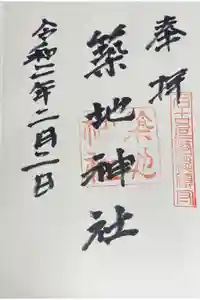 奉拝
築地神社
令和二年二月二日